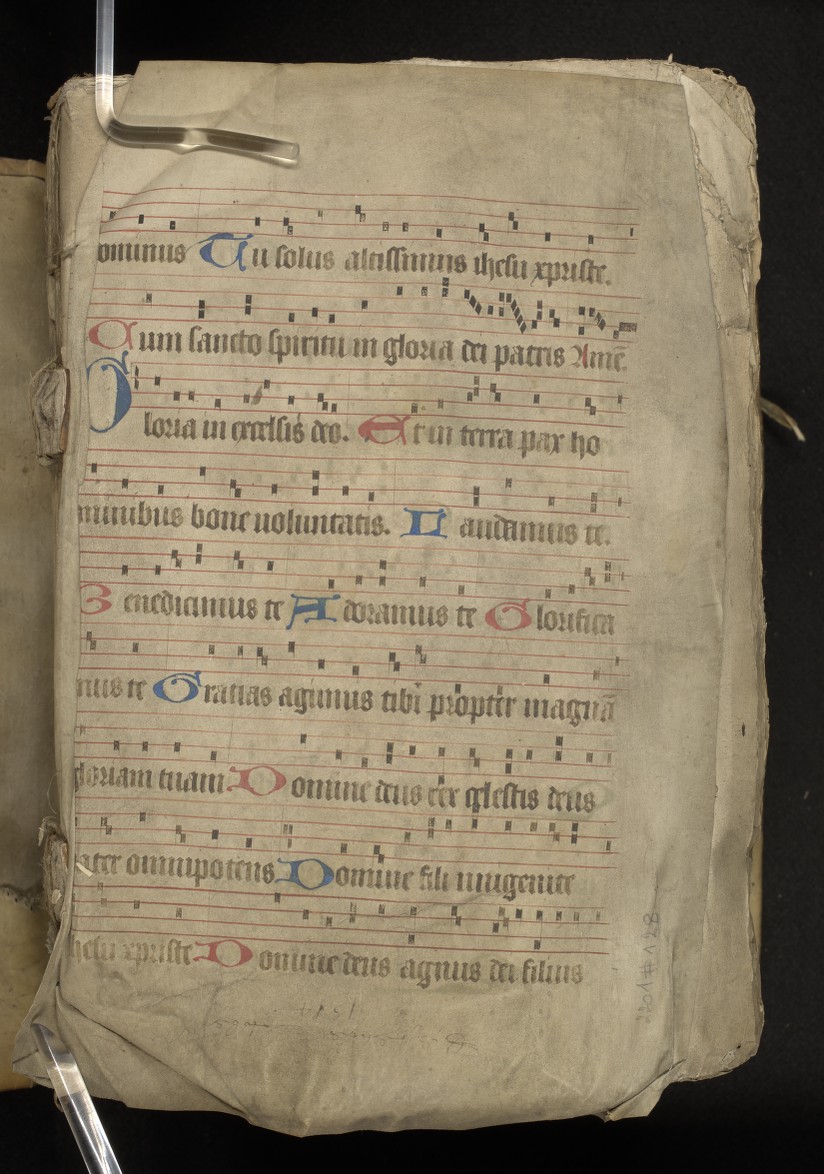 ominus Tu solus altissimus ihesu xpriste.
Cum sancto spiritu in gloria dei patris Amē.
Gloria in excelsis deo. Et in terra pax ho
minibus bone uoluntatis. Laudamus te.
Benedicimus te Adoramus te Glorifica
mus te Gratias agimus tibi propter magnā
gloriam tuam Domine deus rex celestis deus
ater omnipotens Domine fili unigenite
hesu xpriste Domine deus agnus dei filius